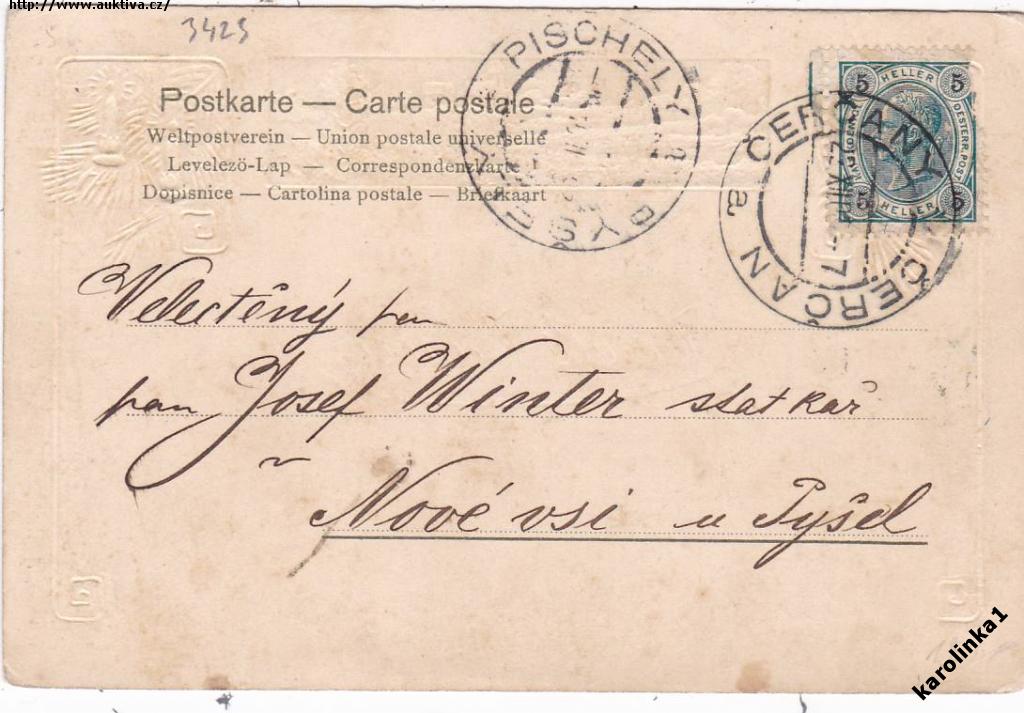 http://www.auktiva.cz/
3423
Postkarte — Carte postale
Weltpostverein — Union postale universelle
Levelező-Lap — Correspondenzkarte
Dopisnice — Cartolina postale — Briefkaart
PISCHELY a PYŠELY
ČERČANY
ČERČAN a
5 HELLER 5
OESTERR. POST
5 HELLER 5
Velectěný pan
pan Josef Winter statkář
v
Nové vsi u Pyšel
karolinka1